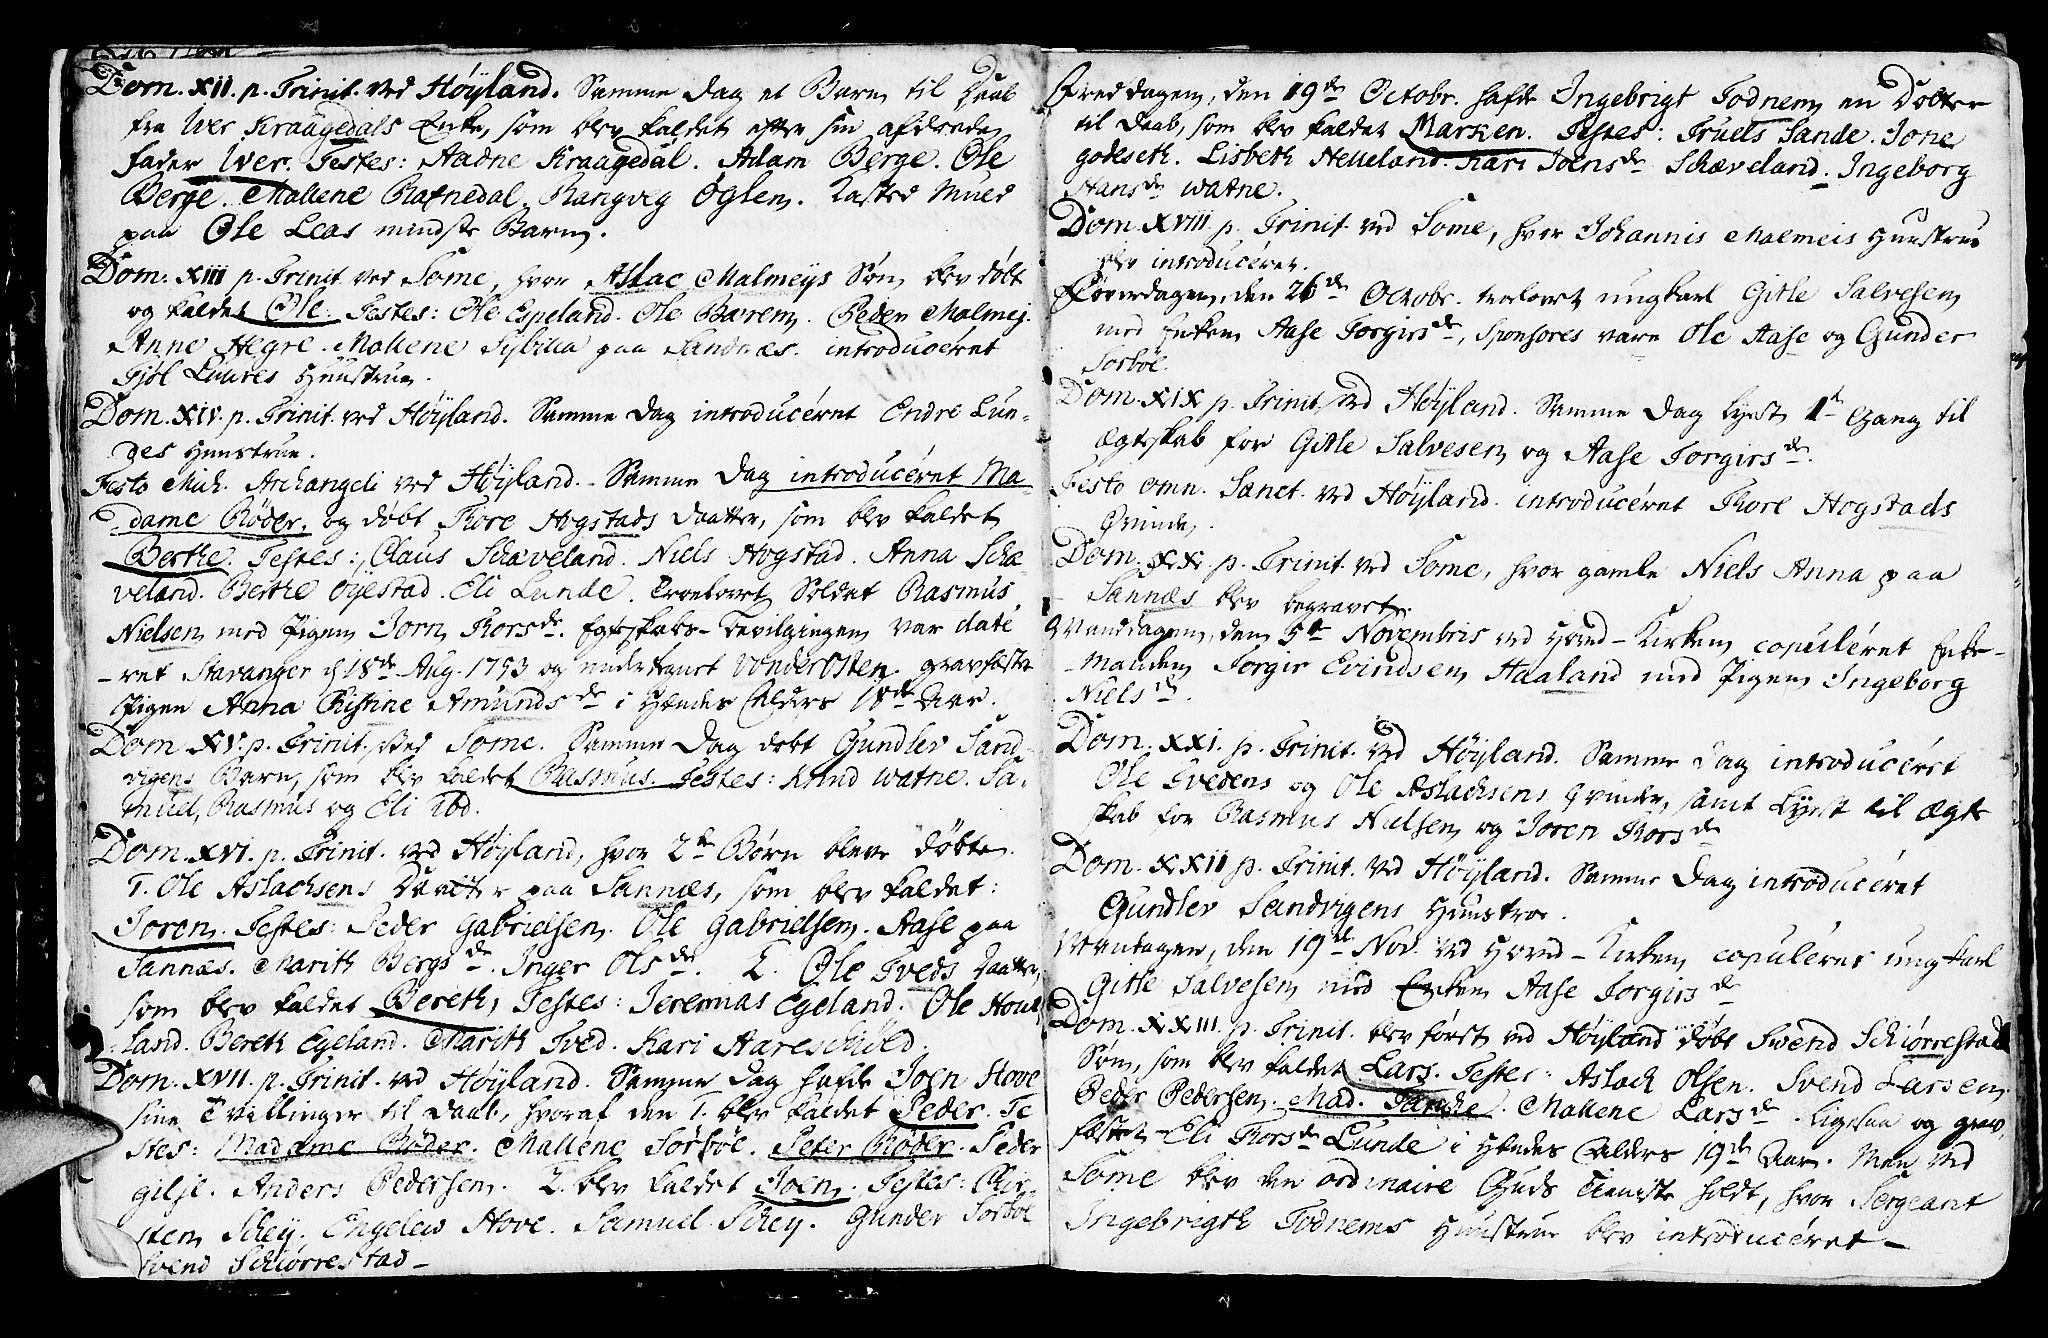 Dom. XII. p. Trinit. ved Höyland. Samme Dag et Barn til Daab
fra Iver Kraagedals Enke, som blev kaldet efter sin afdøde
fader Iver. Testes: Aadne Kraagedal. Adam Berge. Ole
Berge. Mallene Rafnedal. Rangveg Öglen. Kasted Muld
paa Ole Leas mindste Barn.
Dom. XIII p. Trinit ved Some, hvor Aslac Malmeys Søn blev döbt
og kaldet Ole. Testes: Ole Espeland. Ole Barem. Peder Malmej.
Anne Hegre. Mallene Sybilla paa Sandnæs. introduceret
Tjöl Lunnes Huustrue.
Dom. XIV. p. Trinit. ved Höyland. Samme Dag introduceret Endre Lun-
des Huustrue.
Festo Mich. Archangeli ved Höyland. Samme Dag introduceret Ma-
dame Röder, og döbt Tore Hogstads Daatter, som blev kaldet
Berthe. Testes: Claus Schæveland. Niels Hogstad. Anna Schæ-
veland. Berthe öyestad. Eli Lunde. Troelovet Soldat Rasmus
Nielsen med Pigen Jorn Thorsdr. Egteskabs-Bevilgingen var daté-
-ret Stavanger d 18de Aug. 1753 og underskrevet Vonderosten. gravfæstet
Pigen Anna Kistine Amundsdr i Hendes Alders 18de Aar.
Dom XV. p. Trinit. ved Some. Samme Dag döbt Gundlev Sand-
vigens Barn, som blev kaldet Rasmus. Testes: Knud Watne. Sa-
muel, Rasmus og Eli ibd.
Dom. XVI. p. Trinit. ved Höyland, hvor 2de Börn bleve döbte.
1. Ole Aslachsens Daatter paa Sannæs, som blev kaldet:
Joren. Testes: Peder Gabrielsen. Ole Gabrielsen. Aase paa
Sannæs. Marith Bergsdr. Inger Olsdr. 2. Ole Tveds Daatter,
som blev kaldet Bereth, Testes: Jeremias Egeland. Ole Hou-
land. Bereth Egeland. Marith Tved. Kari Aareskiold.
Dom. XVII. p. Trinit. ved Höyland. Samme Dag hafde Joen Hove
sine Tvillinger til Daab, hvoraf den 1. blev kaldet Peder. Te-
stes: Madame Röder. Mallene Sörböe. Peter Röder. Peder
Gilje. Anders Pedersen. 2. blev kaldet Joen. Testes: Chir-
sten Schey. Engelew Hove. Samuel Schey. Gunder Sörböe
Svend Schiörrestad.
Fredagen, den 19de Octobr. hafde Ingebrigt Todnem en Dotter
til Daab, som blev kaldet Marsen. Testes: Truels Sande. Jone
godeseth. Lisbeth Helleland. Kari Joensdr Schæveland. Ingeborg
Hansdr Watne.
Dom. XVIII p. Trinit. ved Some, hvor Johannis Malmeis Huustrue
blev introduceret.
Löverdagen, den 26de Octobr. trolovet ungkarl Gitle Salvesen
med Enken Aase Torgirsdr, Sponsores vare Ole Aase og Gunder
Sorböe.
Dom. XIX p. Trinit. ved Höyland. Samme Dag lyst 1te Gang til
Ægteskab for Gitle Salvesen og Aase Torgirsdr.
Festo omn. Sanct. ved Höyland. introduceret Thore Hogstads
Qvinde.
Dom. XX. p. Trinit. ved Some, hvor gamle Niels Anna paa
Sannæs blev begravet.
Mandagen, den 5te Novembris ved Hoved-Kirken copuleret Enke-
-Manden Torgir Evindsen Haaland med Pigen Ingeborg
Nielsdr.
Dom. XXI. p. Trinit. ved Höyland. Samme Dag introduceret
Ole Tvedens og Ole Aslachsens Qvinder, samt lyst til Ægte
skab for Rasmus Nielsen og Joren Thorsdr
Dom. XXII p. Trinit. ved Höyland. Samme Dag introduceret
Gundlev Sandvigens Huustroe.
Mandagen, den 19de Nov. ved Hoved-Kirken copuleret ungkarl
Gitle Salvesen med Enken Aase Torgirsdr
Dom. XXIII. p. Trinit. blev först ved Höyland döbt Swend Schiørrestads
Søn, som blev kaldet Lars. Testes: Aslach Olsen. Svend Larsen.
Peder Pedersen. Mad. Mallene Larsdr. Ligesaa og grav-
fæstet Eli Thorsdr Lunde i Hendes Alders 19de Aar. Men ved
Some blev den ordinaire Guds Tieniste holdt, hvor Sergeant
Ingebrigth Todnems Huustrue blev introduceret-